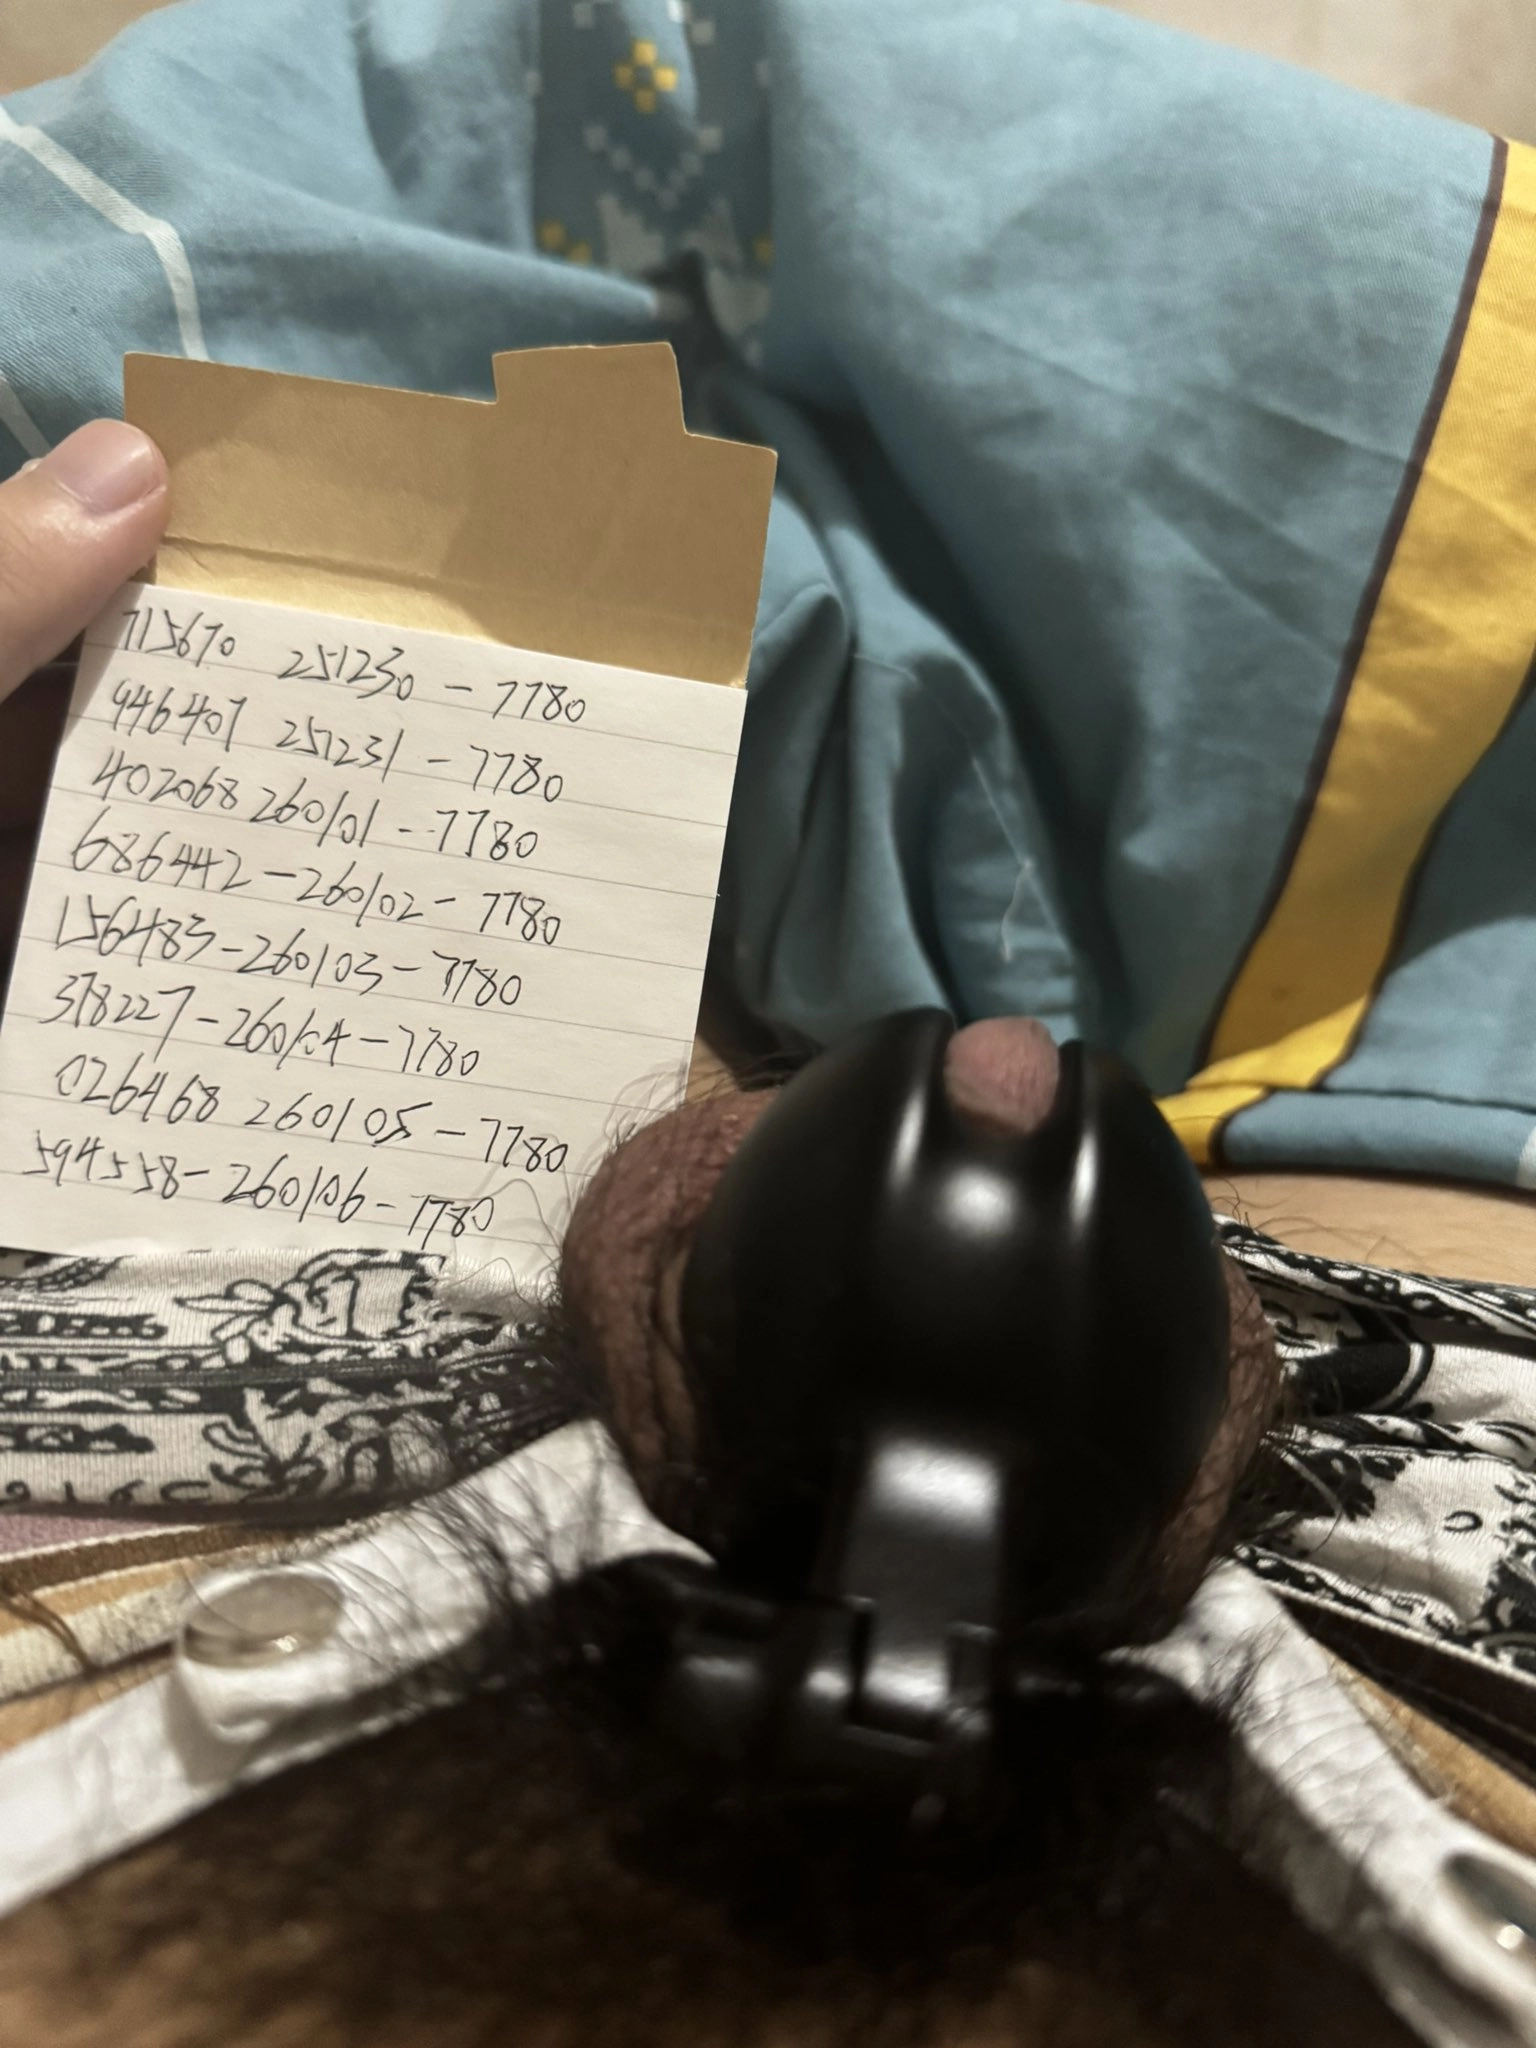 715670 251230 - 7780
946407 251231 - 7780
402068 260101 - 7780
686442 - 260102 - 7780
156483 - 260103 - 7780
378227 - 260104 - 7780
026468 260105 - 7780
594558 - 260106 - 7780